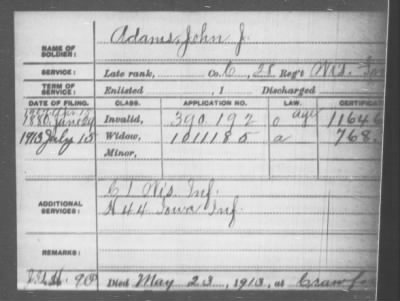 NAME OF SOLDIER: Adams, John J.
SERVICE: Late rank, Co. C, 28 Reg't Wis. Inf
TERM OF SERVICE: Enlisted , 1 Discharged
DATE OF FILING. CLASS. APPLICATION NO. LAW. CERTIFICA
1880 June 24 Invalid, 390.192 11646
1913 July 15 Widow, 1011185 a 768.
Minor,
ADDITIONAL SERVICES: C 1 Wis Inf
H 44 Iowa Inf
REMARKS:
Died May 23, 1913, at Crawf